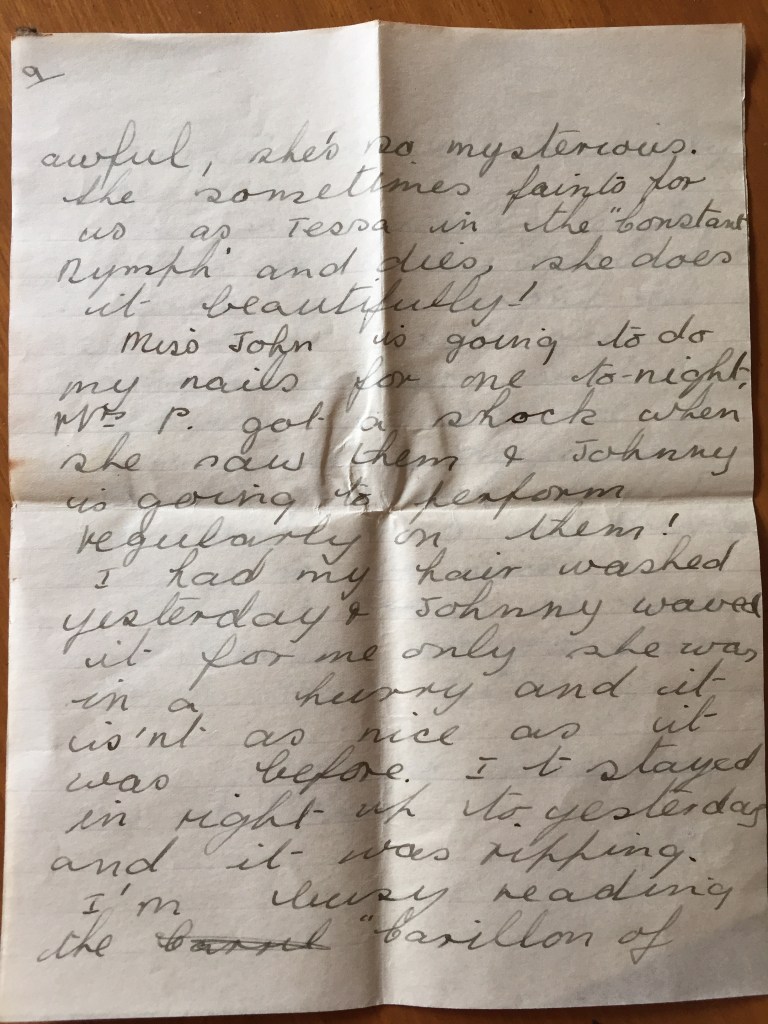 9
awful, she's so mysterious.
She sometimes faints for
us as Tessa in the "Constant
Nymph" and dies, she does
it beautifully!
Miss John is going to do
my nails for me to-night,
Mrs P. got a shock when
she saw them & Johnny
is going to perform
regularly on them!
I had my hair washed
yesterday & Johnny waved
it for me only she was
in a hurry and it
is'nt as nice as it
was before. It stayed
in right up to yesterday
and it was ripping.
I'm busy reading
the "Carillon of